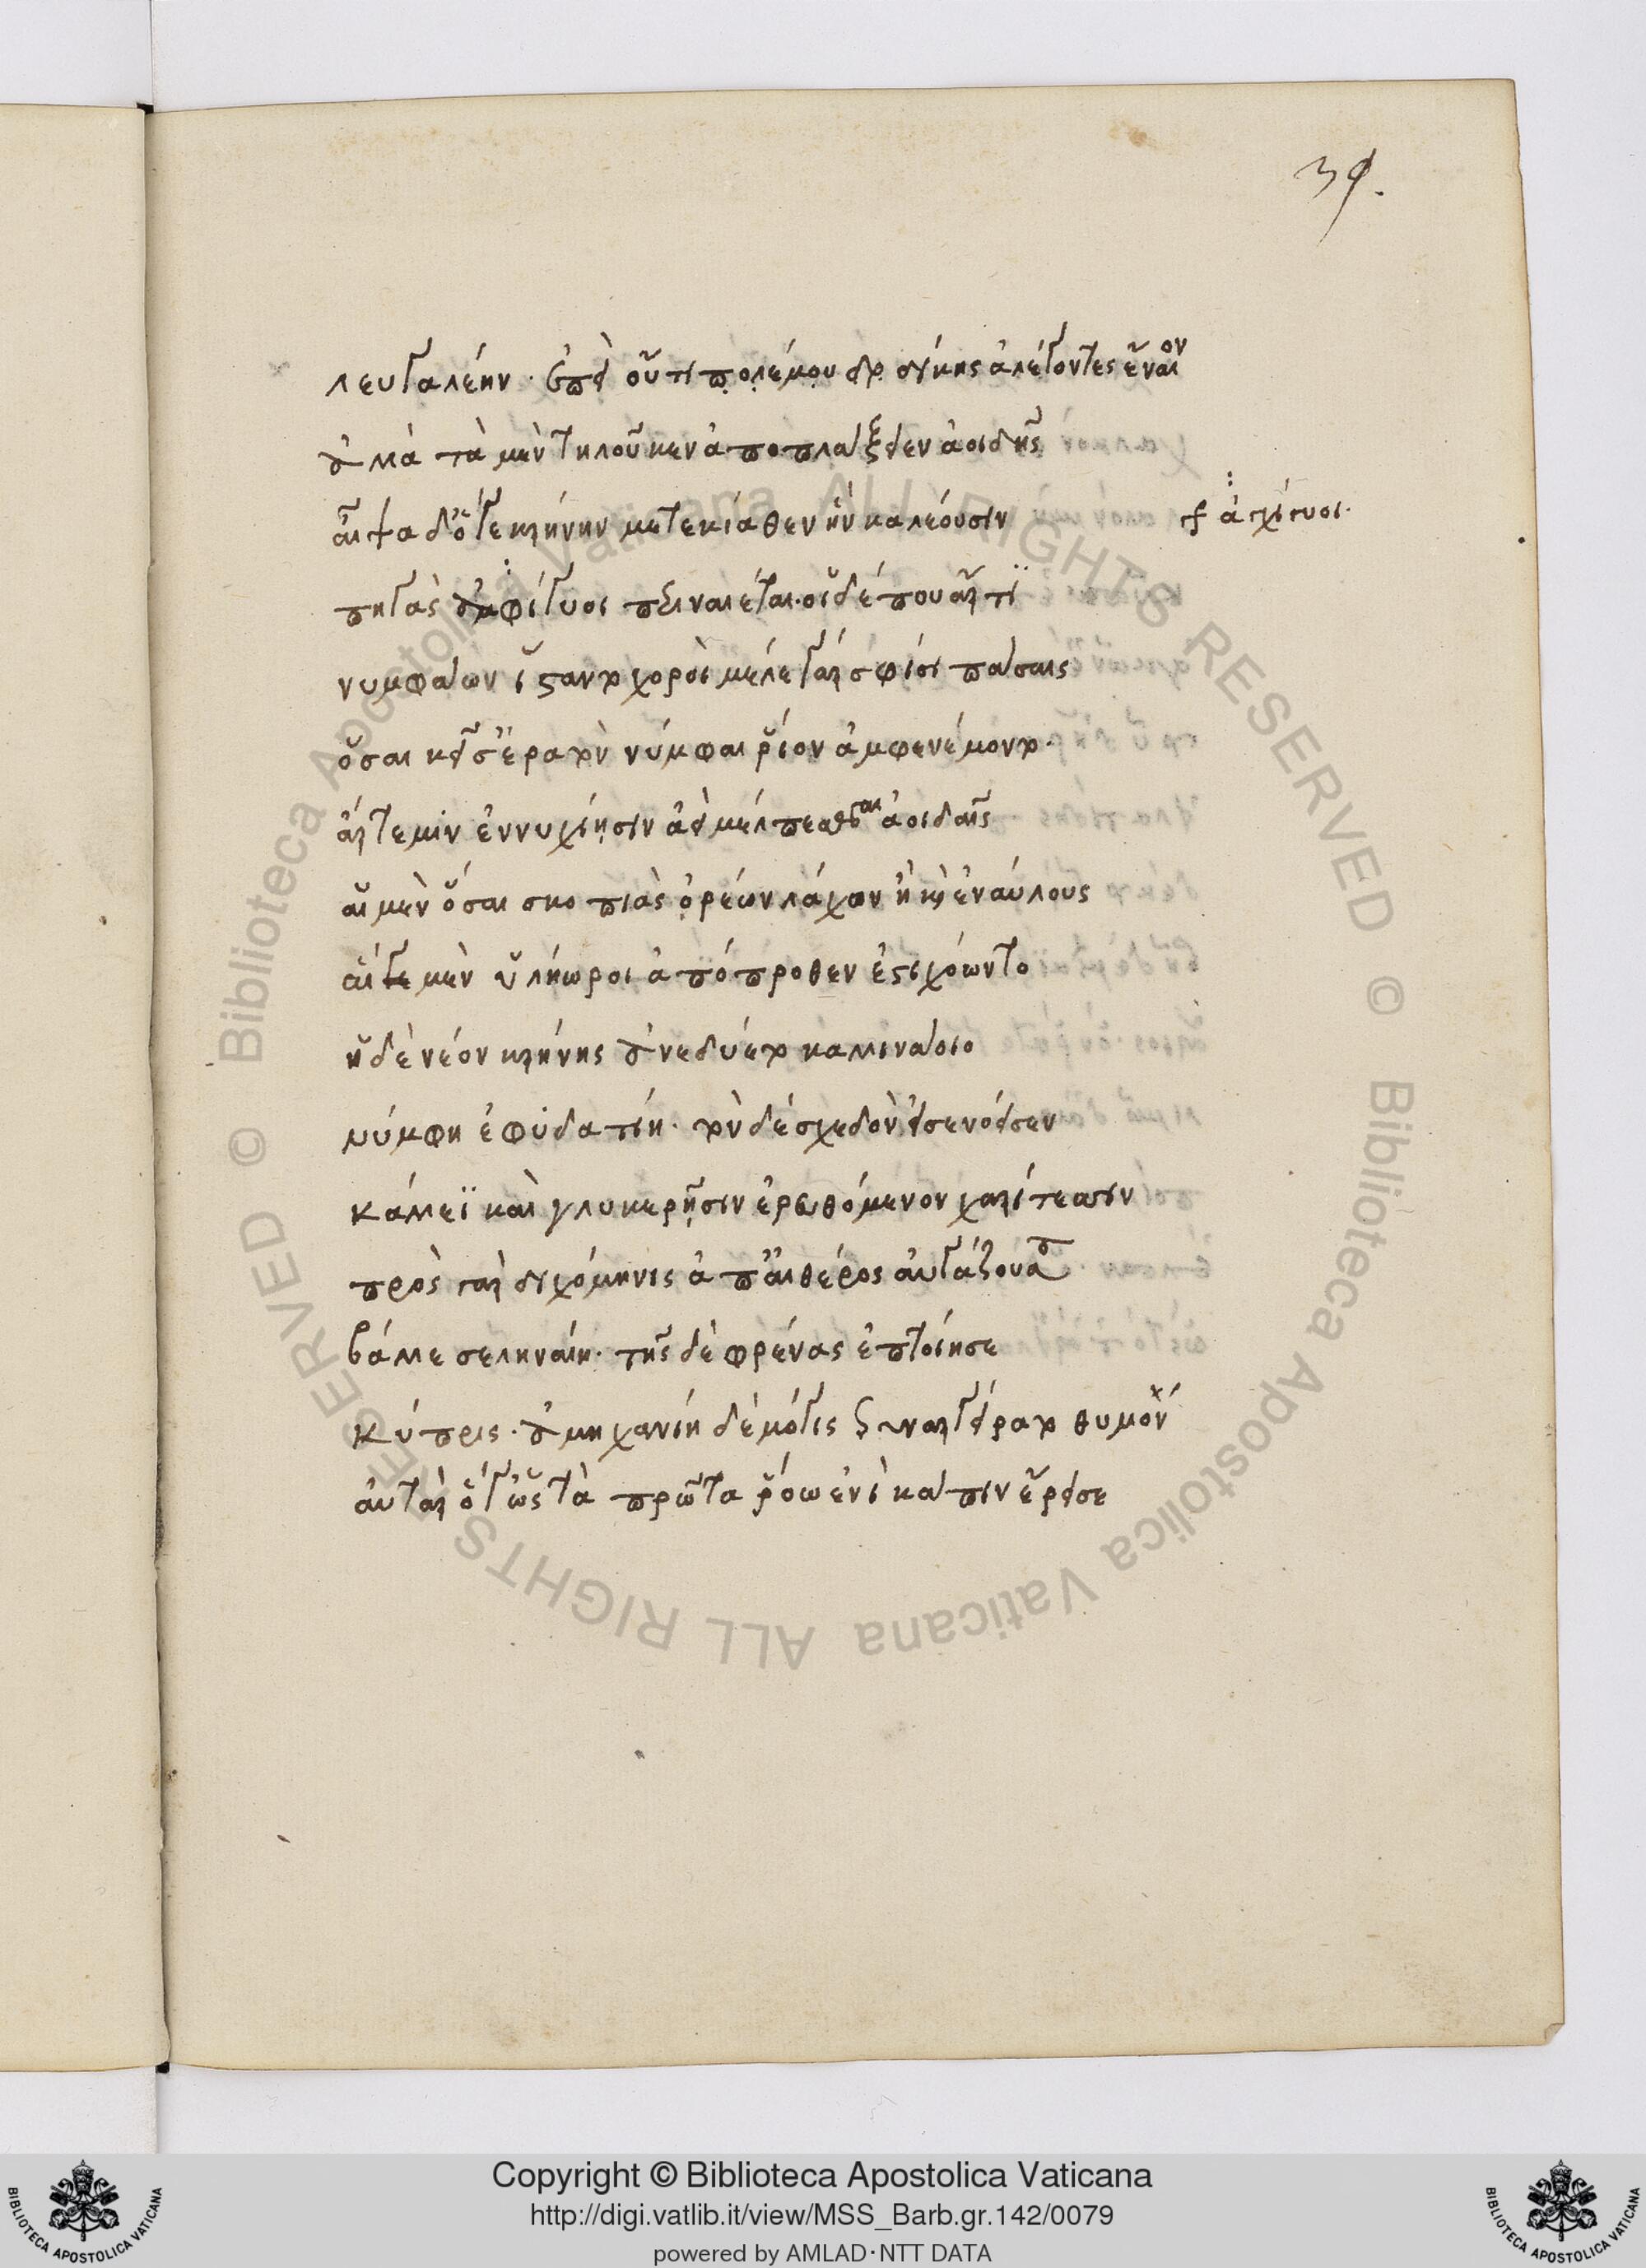 39.
λευγαλέην. ἐπεὶ οὔ τι πολέμου γε δίκης ἀλέγοντες ἔναιον
ἀλλὰ τὰ μὲν τηλοῦ κεν ἀποπλάγξειεν ἀοιδῆς
αἶψα δ' ὅγε κρήνην μετεκίαθεν ἣν καλέουσιν
γρ ἀγχίγυοι.
πηγὰς ἀμφίγυοι περιναιέται. οἱ δέ που ἄρτι
νυμφάων ἵσταντο χοροὶ μέλε γάρ σφισι πάσαις
ὅσαι κεῖσ' ἐρατὸν νύμφαι ῥίον ἀμφενέμοντο.
ἄρτεμιν ἐννυχίῃσιν ἀεὶ μέλπεσθαι ἀοιδαῖς
αἱ μὲν ὅσαι σκοπιὰς ὀρέων λάχον ἢ καὶ ἐναύλους
αἵ γε μὲν ὑλήωροι ἀπόπροθεν ἐστιχόωντο
ἡ δὲ νέον κρήνης ἀνεδύετο καλλινάοιο
νύμφη ἐφυδατίη. τὸν δὲ σχεδὸν εἰσενόησεν
κάλλεϊ καὶ γλυκερῇσιν ἐρευθόμενον χαρίτεσσιν
πρὸς γάρ οἱ διχόμηνις ἀπ' αἰθέρος αὐγάζουσα
βάλλε σεληναίη. τῆς δὲ φρένας ἐπτοίησε
κύπρις. ἀμηχανίη δὲ μόγις συναγείρατο θυμόν
αὐτὰρ ὅγ' ὡς τὰ πρῶτα ῥόῳ ἐνὶ κάλπιν ἔρεισε
Copyright © Biblioteca Apostolica Vaticana
http://digi.vatlib.it/view/MSS_Barb.gr.142/0079
powered by AMLAD·NTT DATA